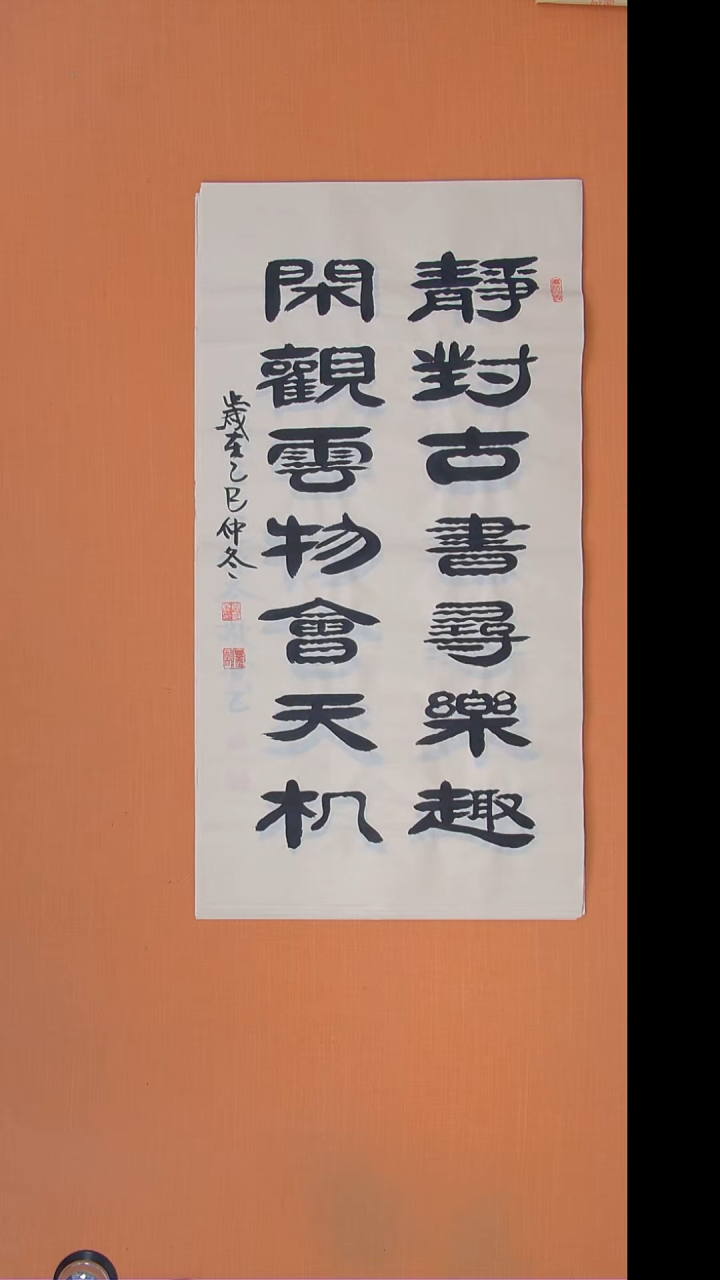 靜對古書尋樂趣
閑觀雲物會天机
歲在乙巳仲冬